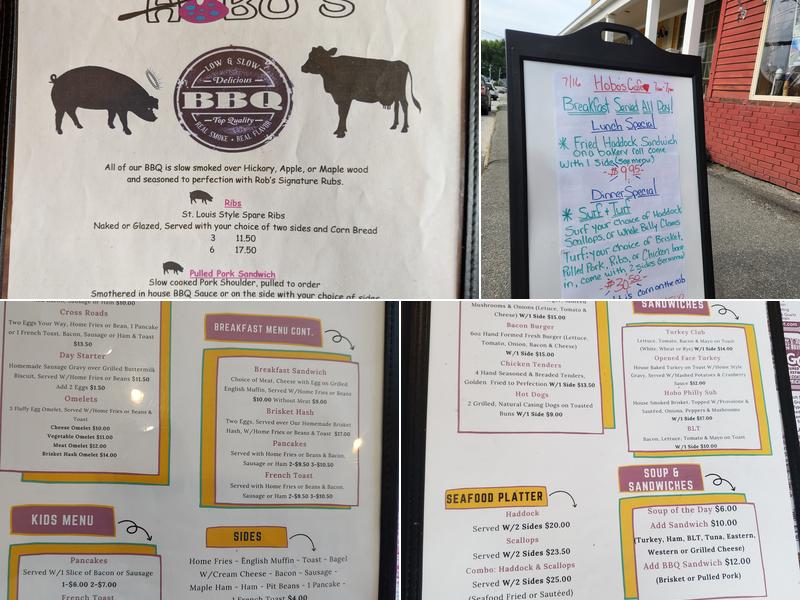 HOBO'S
LOW & SLOW
Delicious
BBQ
Top Quality
REAL SMOKE • REAL FLAVOR
All of our BBQ is slow smoked over Hickory, Apple, or Maple wood
and seasoned to perfection with Rob's Signature Rubs.
Ribs
St. Louis Style Spare Ribs
Naked or Glazed, Served with your choice of two sides and Corn Bread
3 11.50
6 17.50
Pulled Pork Sandwich
Slow cooked Pork Shoulder, pulled to order
Smothered in house BBQ Sauce or on the side with your choice of sides
7/16 Hobo's Cafe
Breakfast Served All Day!
Lunch Special
* Fried Haddock Sandwich
on a bakery roll come
with 1 side (see menu)
-$9.95-
Dinner Special
* Surf + Turf
Surf your choice of Haddock
Scallops, or Whole Belly Clams
Turf: your choice of Brisket,
Pulled Pork, Ribs, or Chicken
in, come with 2 sides
-$30.50-
corn on the cob
Cross Roads
Two Eggs Your Way, Home Fries or Bean, 1 Pancake
or 1 French Toast, Bacon, Sausage or Ham & Toast
$13.50
Day Starter
Homemade Sausage Gravy over Grilled Buttermilk
Biscuit, Served W/Home Fries or Beans $11.50
Add 2 Eggs $1.50
Omelets
3 Fluffy Egg Omelet, Served W/Home Fries or Beans &
Toast
Cheese Omelet $10.00
Vegetable Omelet $11.00
Meat Omelet $12.00
Brisket Hash Omelet $14.00
KIDS MENU
Pancakes
Served W/1 Slice of Bacon or Sausage
1-$6.00 2-$7.00
French Toast
BREAKFAST MENU CONT.
Breakfast Sandwich
Choice of Meat, Cheese with Egg on Grilled
English Muffin, Served W/Home Fries or Beans
$10.00 Without Meat $9.00
Brisket Hash
Two Eggs, Served over Our Homemade Brisket
Hash, W/Home Fries or Beans & Toast $17.00
Pancakes
Served with Home Fries or Beans & Bacon,
Sausage or Ham 2-$9.50 3-$10.50
French Toast
Served with Home Fries or Beans & Bacon,
Sausage or Ham 2-$9.50 3-$10.50
SIDES
Home Fries - English Muffin - Toast - Bagel
W/Cream Cheese - Bacon - Sausage -
Maple Ham - Ham - Pit Beans - 1 Pancake -
1 French Toast $4.00
Mushrooms & Onions (Lettuce, Tomato &
W/1 Side $15.00
Bacon Burger
6oz Hand Formed Fresh Burger (Lettuce,
Tomato, Onion, Bacon & Cheese)
W/1 Side $15.00
Chicken Tenders
4 Hand Seasoned & Breaded Tenders,
Golden Fried to Perfection W/1 Side $13.50
Hot Dogs
2 Grilled, Natural Casing Dogs on Toasted
Buns W/1 Side $9.00
SEAFOOD PLATTER
Haddock
Served W/2 Sides $20.00
Scallops
Served W/2 Sides $23.50
Combo: Haddock & Scallops
Served W/2 Sides $25.00
(Seafood Fried or Sautéed)
SANDWICHES
Turkey Club
Lettuce, Tomato, Bacon & Mayo on Toast
(White, Wheat or Rye) W/1 Side $14.00
Opened Face Turkey
House Baked Turkey on Toast W/Home Style
Gravy, Served W/Mashed Potatoes & Cranberry
Sauce $12.00
Hobo Philly Sub
House Smoked Brisket, Topped W/Provolone &
Sautéed, Onions, Peppers & Mushrooms
W/1 Side $17.00
BLT
Bacon, Lettuce, Tomato & Mayo on Toast
W/1 Side $10.00
SOUP &
SANDWICHES
Soup of the Day $6.00
Add Sandwich $10.00
(Turkey, Ham, BLT, Tuna, Eastern,
Western or Grilled Cheese)
Add BBQ Sandwich $12.00
(Brisket or Pulled Pork)